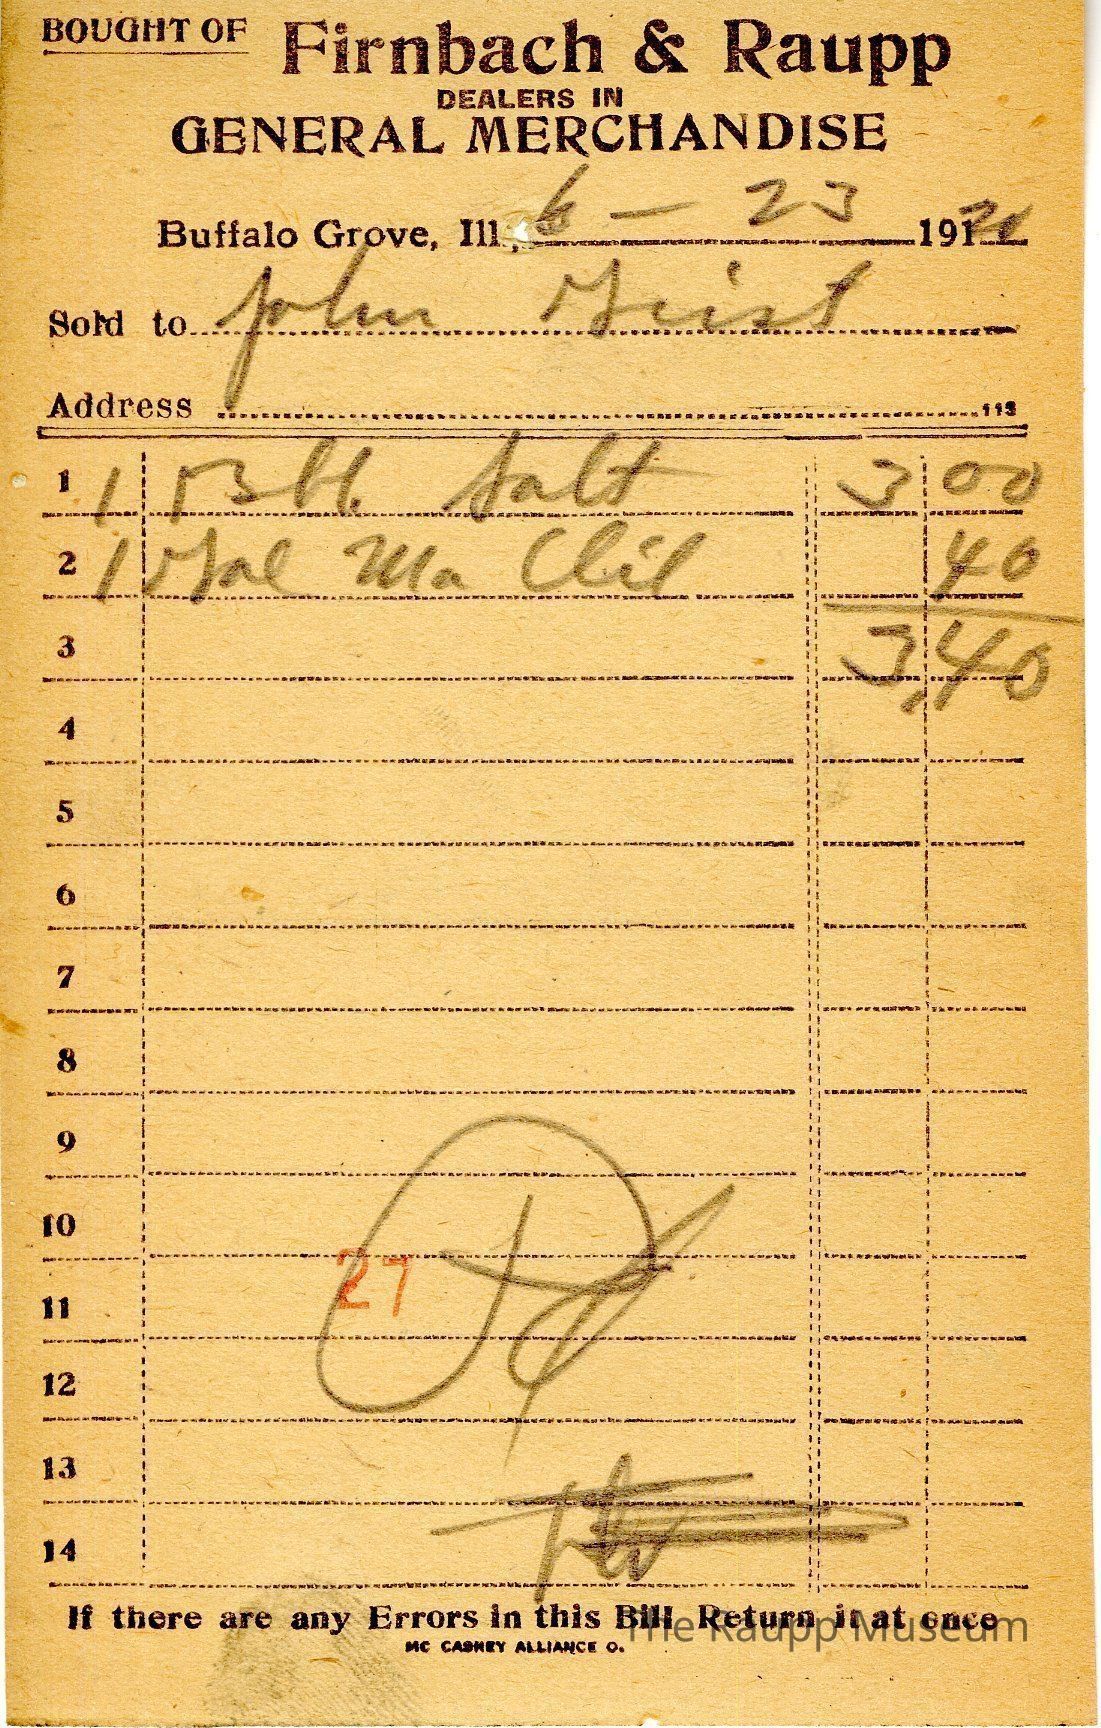 BOUGHT OF Firnbach & Raupp
DEALERS IN
GENERAL MERCHANDISE
Buffalo Grove, Ill., 6 - 23 191
Sold to John Geist
Address 113
1 1 Bbl. Salt 3 00
2 1 Gal Ma Oil 40
3 3,40
4
5
6
7
8
9
10
27
11
12
13
14
If there are any Errors in this Bill Return it at once
The Raupp Museum
MC CASKEY ALLIANCE O.